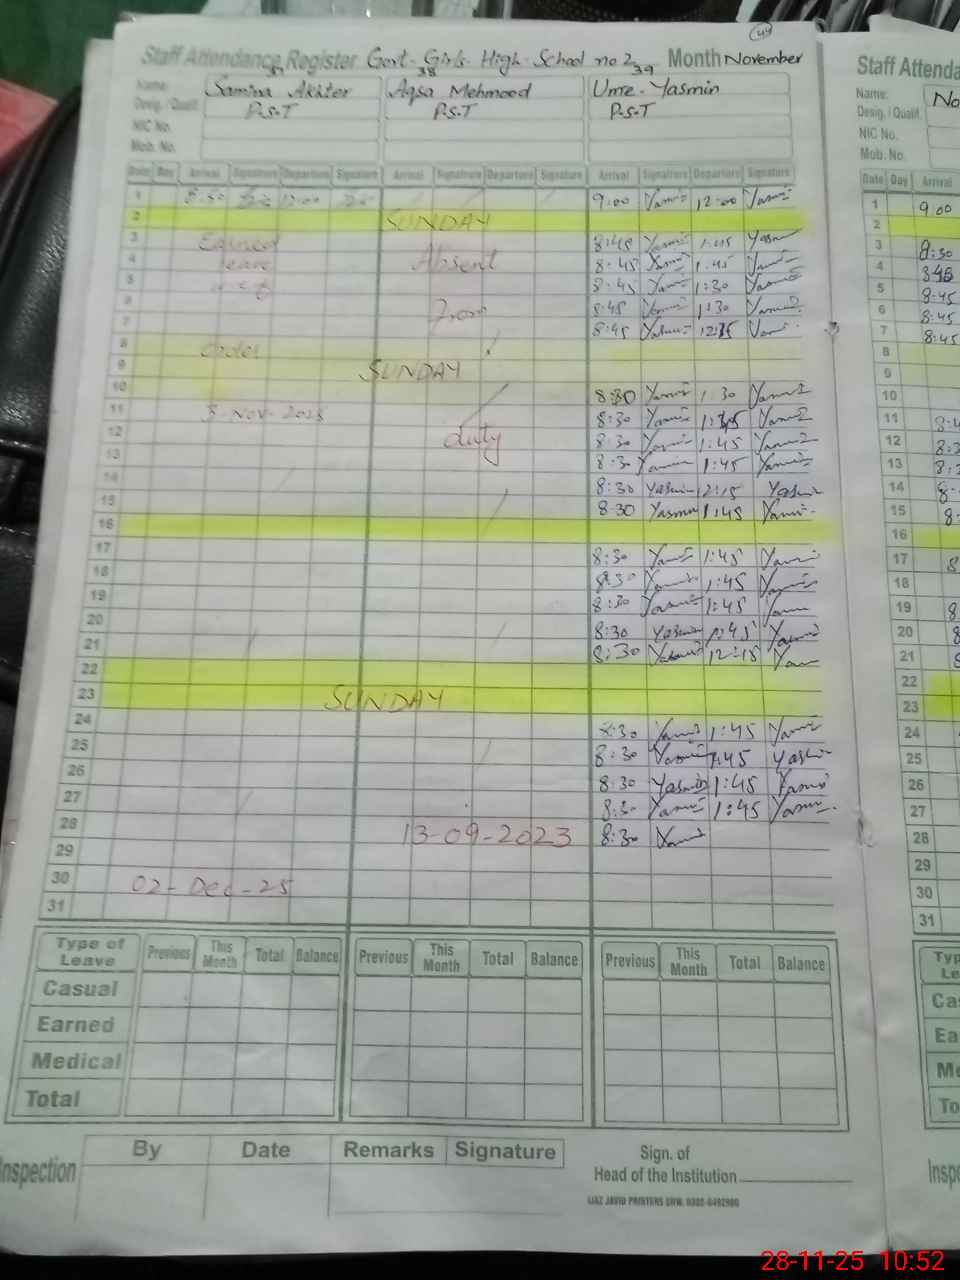 44
Staff Attendance Register Govt. Girls High School no 2 Month November
37 38 39
Name: Samina Akhter Aqsa Mehmood Ume-Yasmin
Desig. / Qualif. P.S.T P.S.T P.S.T
NIC No.
Mob. No.
Date Day Arrival Signature Departure Signature Arrival Signature Departure Signature Arrival Signature Departure Signature
1 12:00 9:00 Yasmin 12:00 Yasmin
2 SUNDAY
3 Earned 8:45 Yasmin 1:45 Yasmin
4 leave Absent 8:45 Yasmin 1:45 Yasmin
5 w.e.f 8:45 Yasmin 1:30 Yasmin
6 From 8:45 Yasmin 1:30 Yasmin
7 8:45 Yasmin 12:15 Yasmin
8
9 SUNDAY
10 8:30 Yasmin 1:30 Yasmin
11 3-Nov-2025 8:30 Yasmin Yasmin
12 duty 8:30 Yasmin 1:45 Yasmin
13 8:30 Yasmin 1:45 Yasmin
14 8:30 Yasmin 12:15 Yasmin
15 8:30 Yasmin 1:45 Yasmin
16
17 8:30 Yasmin 1:45 Yasmin
18 8:30 Yasmin 1:45 Yasmin
19 8:30 Yasmin 1:45 Yasmin
20 8:30 Yasmin 1:45 Yasmin
21 8:30 Yasmin 12:15 Yasmin
22
23 SUNDAY
24 8:30 Yasmin 1:45 Yasmin
25 8:30 Yasmin 1:45 Yasmin
26 8:30 Yasmin 1:45 Yasmin
27 8:30 Yasmin 1:45 Yasmin
28 13-09-2023 8:30 Yasmin
29
30 02-Dec-25
31
Type of Leave Previous This Month Total Balance Previous This Month Total Balance Previous This Month Total Balance
Casual
Earned
Medical
Total
Inspection By Date Remarks Signature
Sign. of
Head of the Institution
IJAZ JAVID PRINTERS GRW. 0300-6492900
Staff Attenda
Name: No
Desig. / Qualif.
NIC No.
Mob. No.
Date Day Arrival
1 9:00
2
3 8:30
4 8:45
5 8:45
6 8:45
7 8:45
8
9
10
11
12
13
14
15
16
17
18
19
20
21
22
23
24
25
26
27
28
29
30
31
28-11-25 10:52